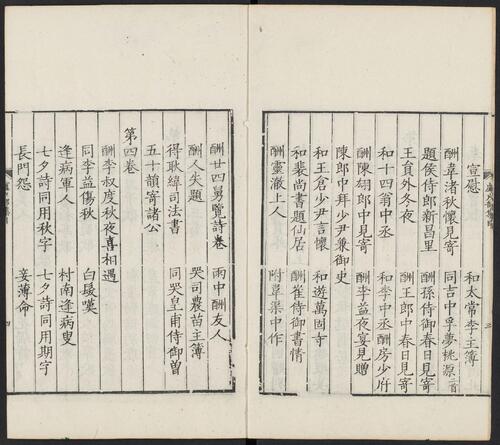 宣慰 和太常李主簿
酬韋渚秋懷見寄 同吉中孚夢桃源二首
題侯侍郎新昌里 酬孫侍御春日見寄
王員外冬夜 酬王郎中春日見寄
和十四翁中丞 和李中丞酬房少府
酬陳翃郎中見寄 酬李益夜宴見贈
陳郎中拜少尹兼御史
和王倉少尹言懷 和遊萬固寺
和裴尚書題仙居 酬崔侍御書情
酬靈澈上人 附韋渠中作
酬廿四舅覽詩卷 雨中酬友人
酬人失題 哭司農苗主簿
得耿緯司法書 同哭皇甫侍御曾
五十韻寄諸公
第四卷
酬李叔度秋夜喜相遇
同李益傷秋 白髮嘆
逢病軍人 村南逢病叟
七夕詩同用秋字 七夕詩同用期字
長門怨 妾薄命